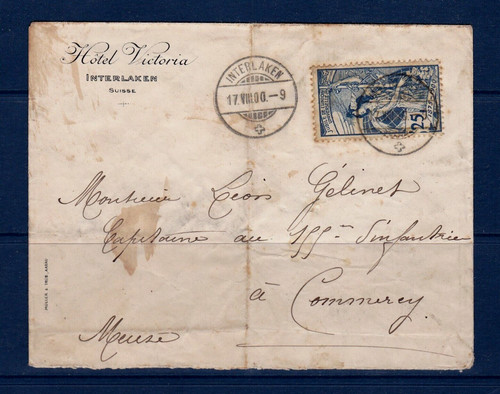 Hôtel Victoria
INTERLAKEN
SUISSE
INTERLAKEN
17.VIII.00.-9
25
Monsieur Léon Gélinet
Capitaine au 155me d'infanterie
à Commercy
Meuse